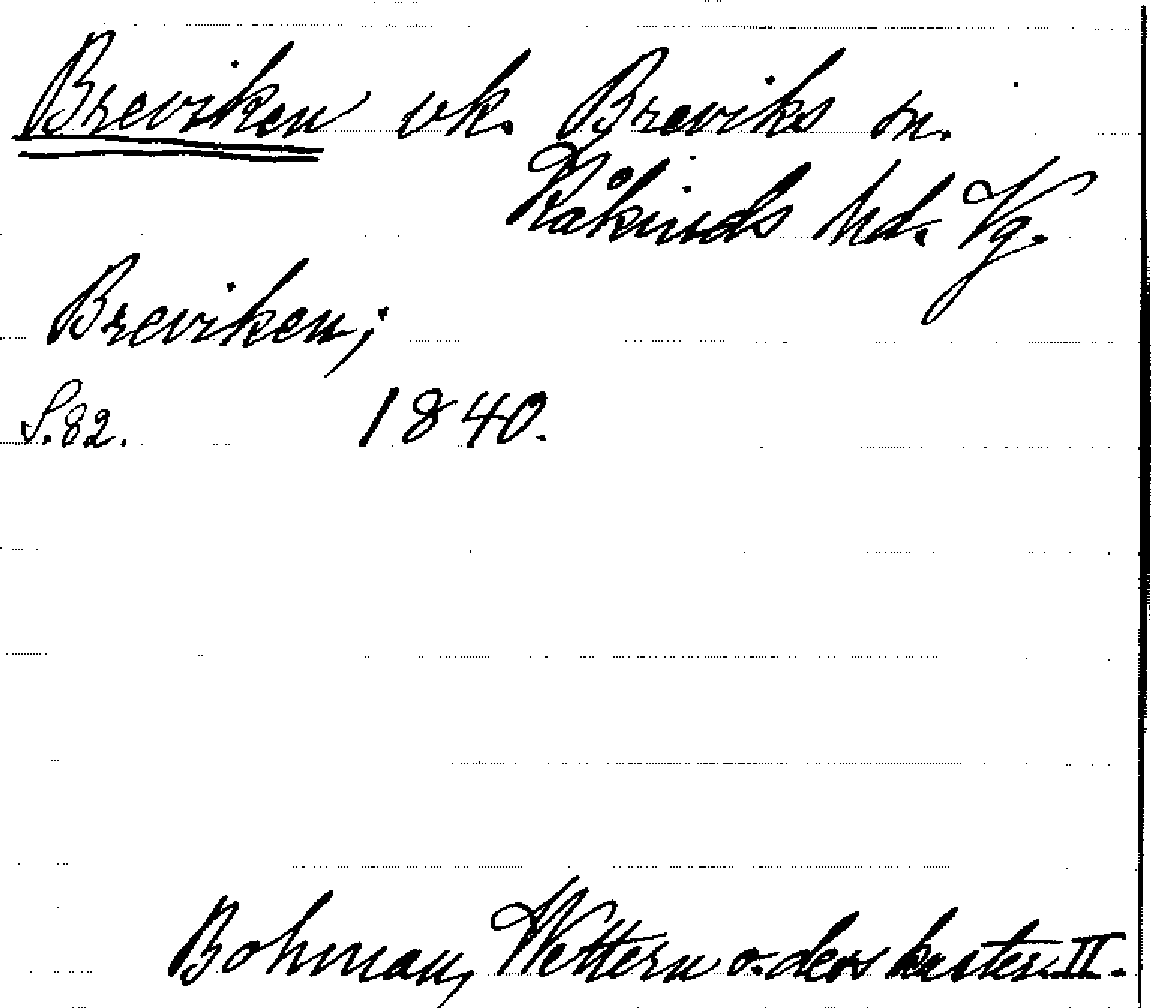 Breviken vk. Breviks sn.
Kåkinds hd. Vg.
Breviken;
S. 82. 1840.
Bohman, Wettern o. dess kuster. II.